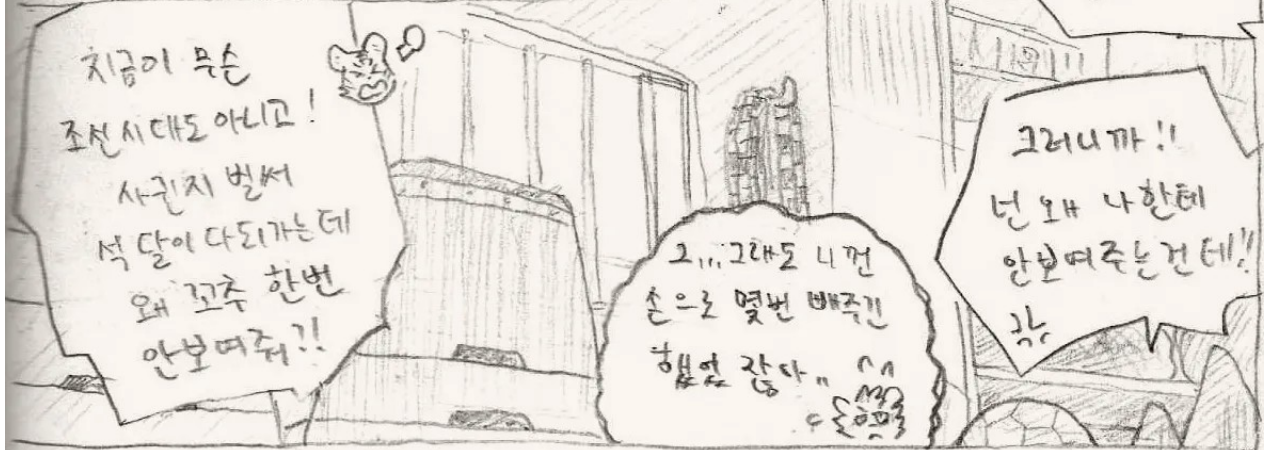 지금이 무슨
조선시대도 아니고!
사귄지 벌써
석 달이 다되가는데
왜 꼬추 한번
안보여줘?!
그...그래도 니껀
손으로 몇번 빼주긴
했었잖아..
그러니까!!
넌 왜 나한테
안보여주는건데!!